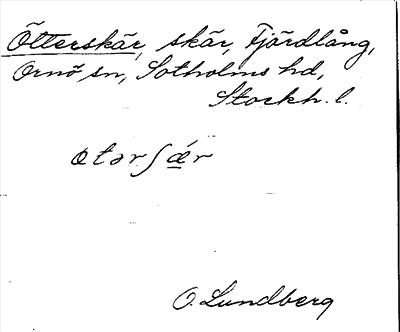 Ötterskär, skär, Fjärdlång,
Ornö sn, Sotholms hd,
Stockh. l.
øtərʃǽr
O. Lundberg